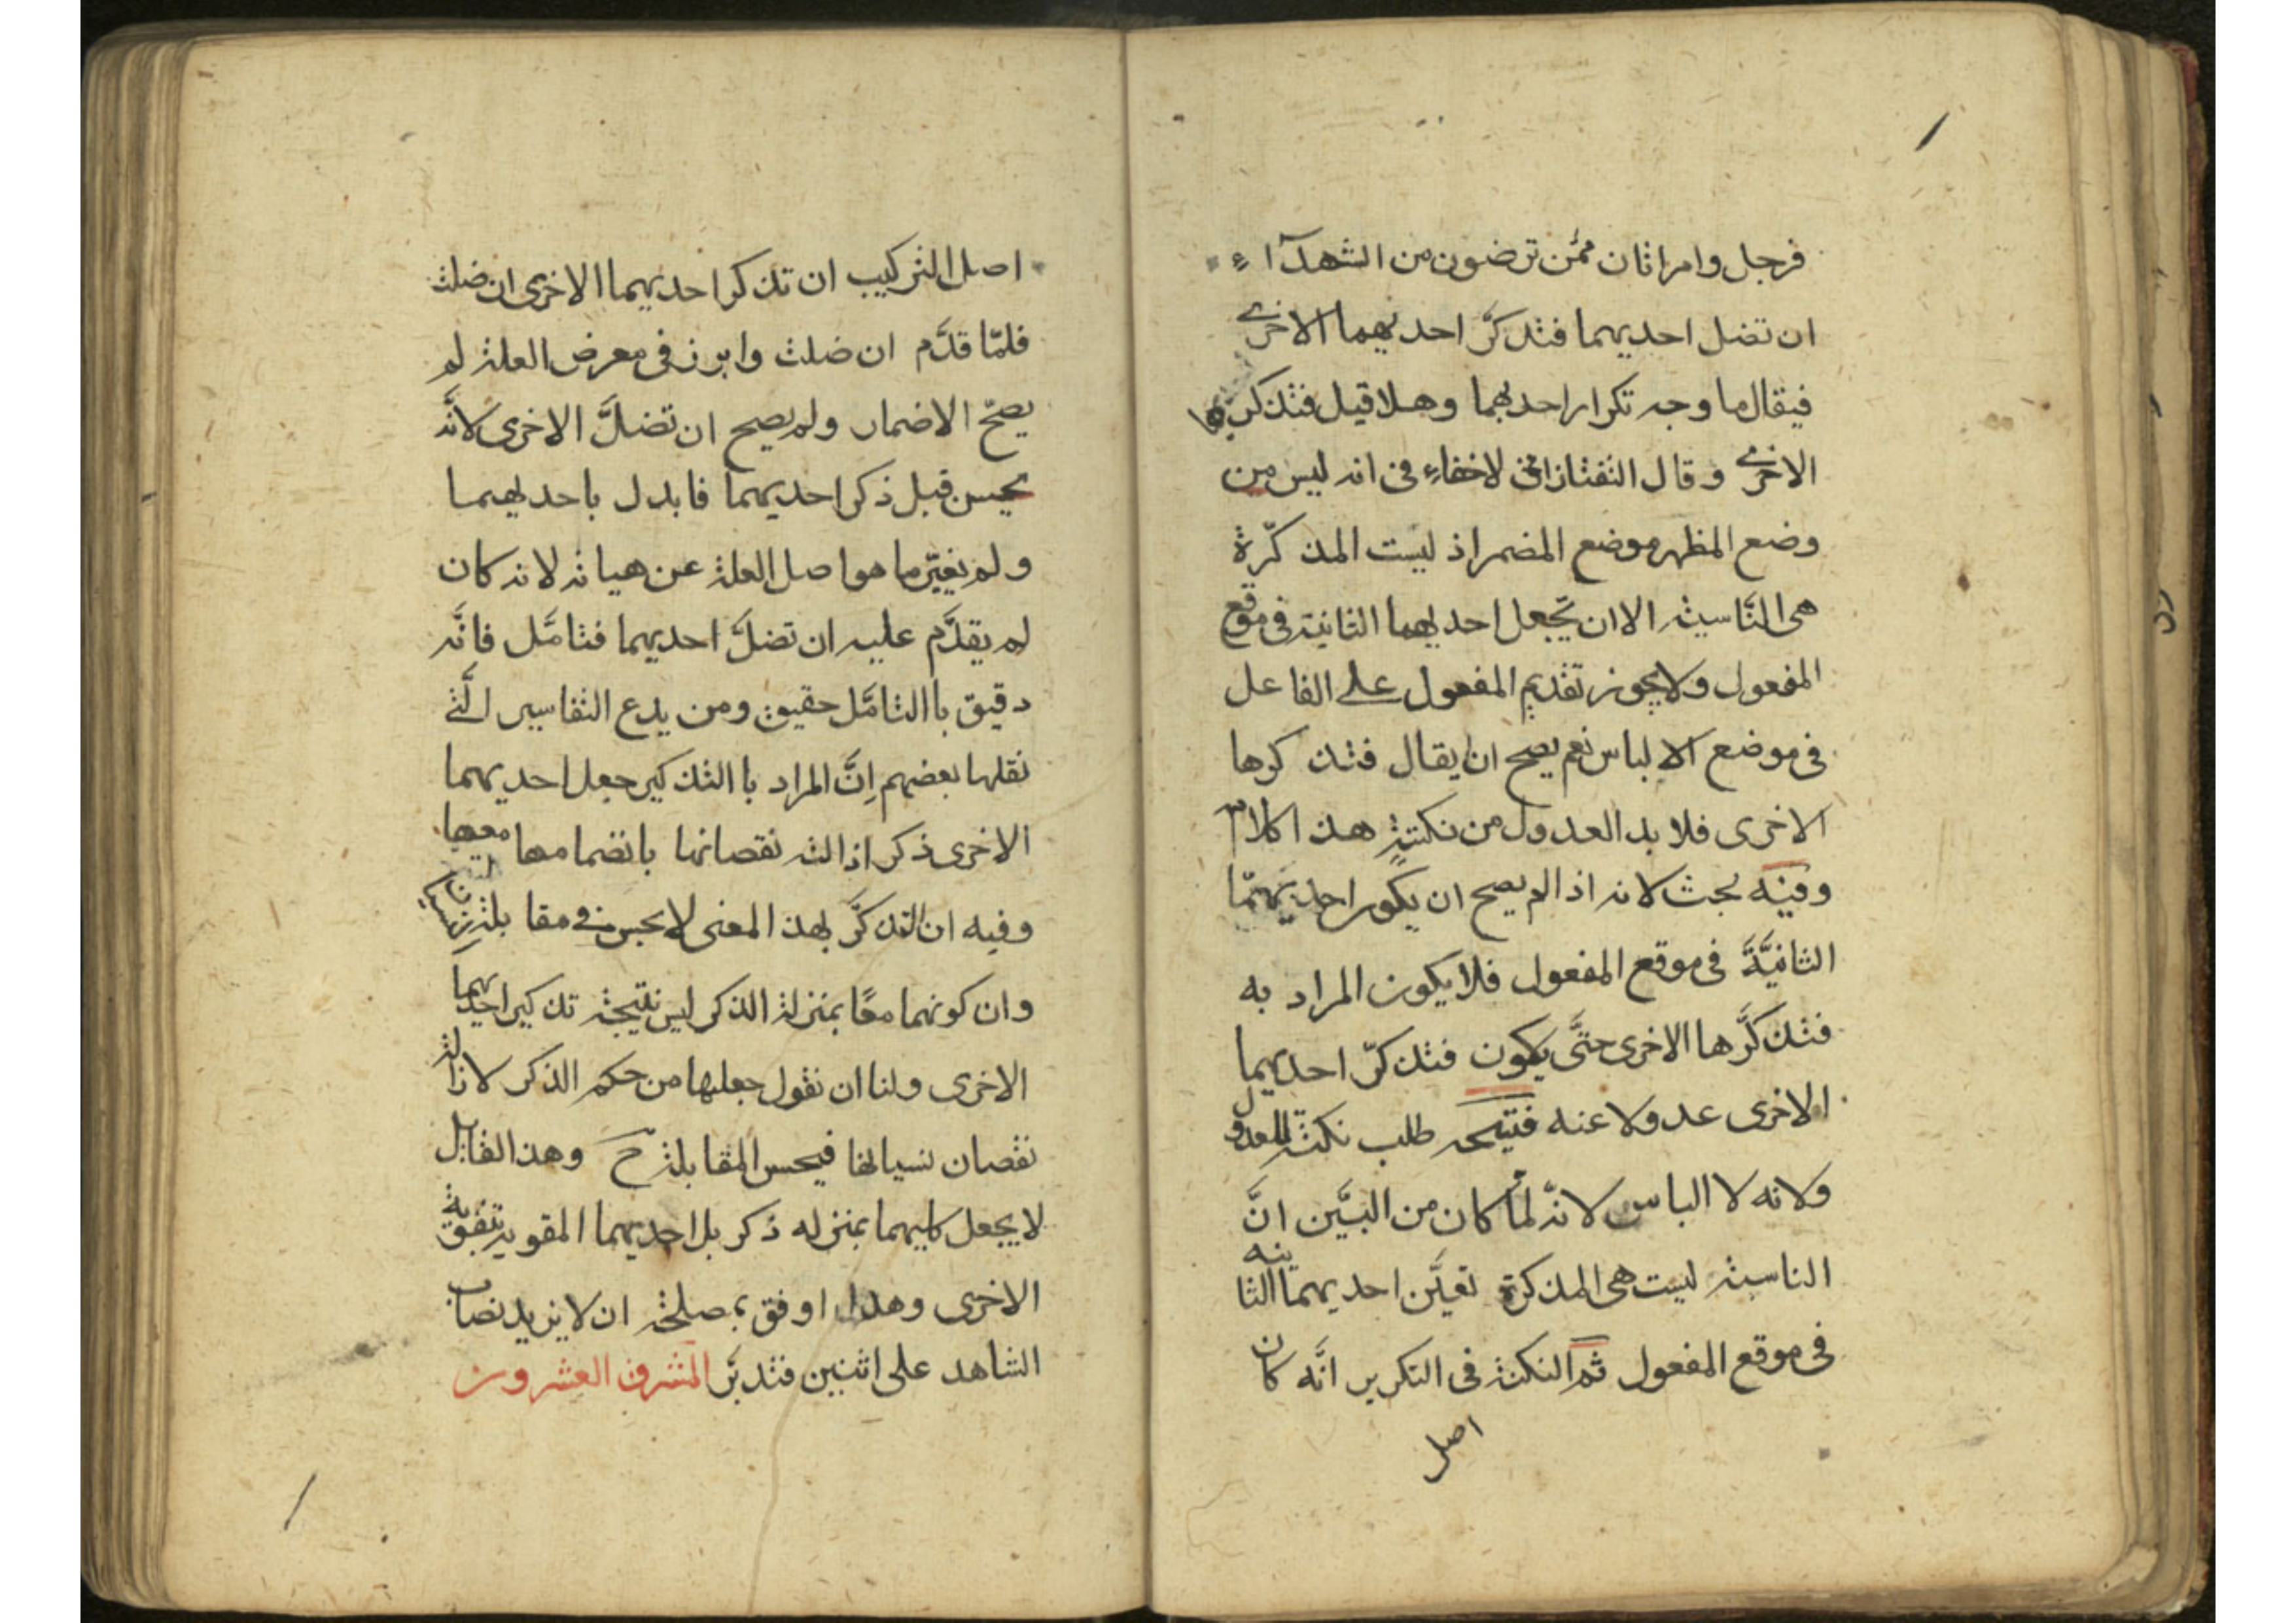 فرجل وامراتان ممّن ترضون من الشهدآء
ان تضل احديهما فتذكّر احديهما الاخرى
فيقال ما وجه تكرار احديهما وهلا قيل فتذكرها
الاخرى وقال التفتازانى لاخفاء فى انه ليس من
وضع المظهر موضع المضمر اذ ليست المذكّرة
هى النّاسية الا ان تجعل احديهما الثانية فى موقع
المفعول ولا يجوز تقديم المفعول على الفاعل
فى موضع الالباس نعم يصح ان يقال فتذكرها
الاخرى فلا بد العدول من نكتة هذا كلامه
وفيه بحث لانه اذا لم يصح ان يكون احديهما
الثانيّة فى موقع المفعول فلا يكون المراد به
فتذكّرها الاخرى حتّى يكون فتذكّر احديهما
الاخرى عدولا عنه فتيجه طلب نكتة للعدول
ولانه لا الباس لانّه لمّا كان من البيّن انّ
الناسية ليست هى المذكرة تعيّن احديهما الثانيه
فى موقع المفعول ثم النكتة فى التكرير انّه كان
اصل
اصل التركيب ان تذكر احديهما الاخرى ان ضلت
فلمّا قدّم ان ضلت وابرز فى معرض العلة لم
يصحّ الاضمار ولم يصح ان تضلّ الاخرى لانّه
يحسن قبل ذكر احديهما فابدل باحديهما
ولم يغيّر ما هو اصل العلة عن هياته لانه كان
لم يقدّم عليه ان تضلّ احديهما فتامّل فانّه
دقيق باالتامّل حقيق ومن بدع التفاسير الّتى
نقلها بعضهم انّ المراد باالتذكير جعل احديهما
الاخرى ذكر اذالة نقصانها بانضمامها معها
وفيه ان التذكّر بهذ المعنى لا يحسن فى مقابلة نسيان
وان كونهما معًا بمنزلة الذكر ليس نتيجة تذكير احديهما
الاخرى ولنا ان نقول جعلها من حكم الذكر لازالة
نقصان نسيانها فيحسن المقابلة ح وهذ القابل
لا يجعل كليهما بمنزله ذكر بل احديهما المقوية بتقوية
الاخرى وهذا اوفق بمصلحة ان لا يزيد نصاب
الشاهد على اثنين فتدبّر المشرق العشرون